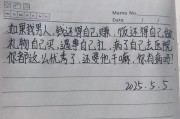 Memo No.
Date / /
如果找男人,钱还得自己赚,饭还得自己做
礼物自己买,过季自己扛,病了自己去医院
你都这么优秀了,还要他干嘛,你有病吗?
2025.5.5